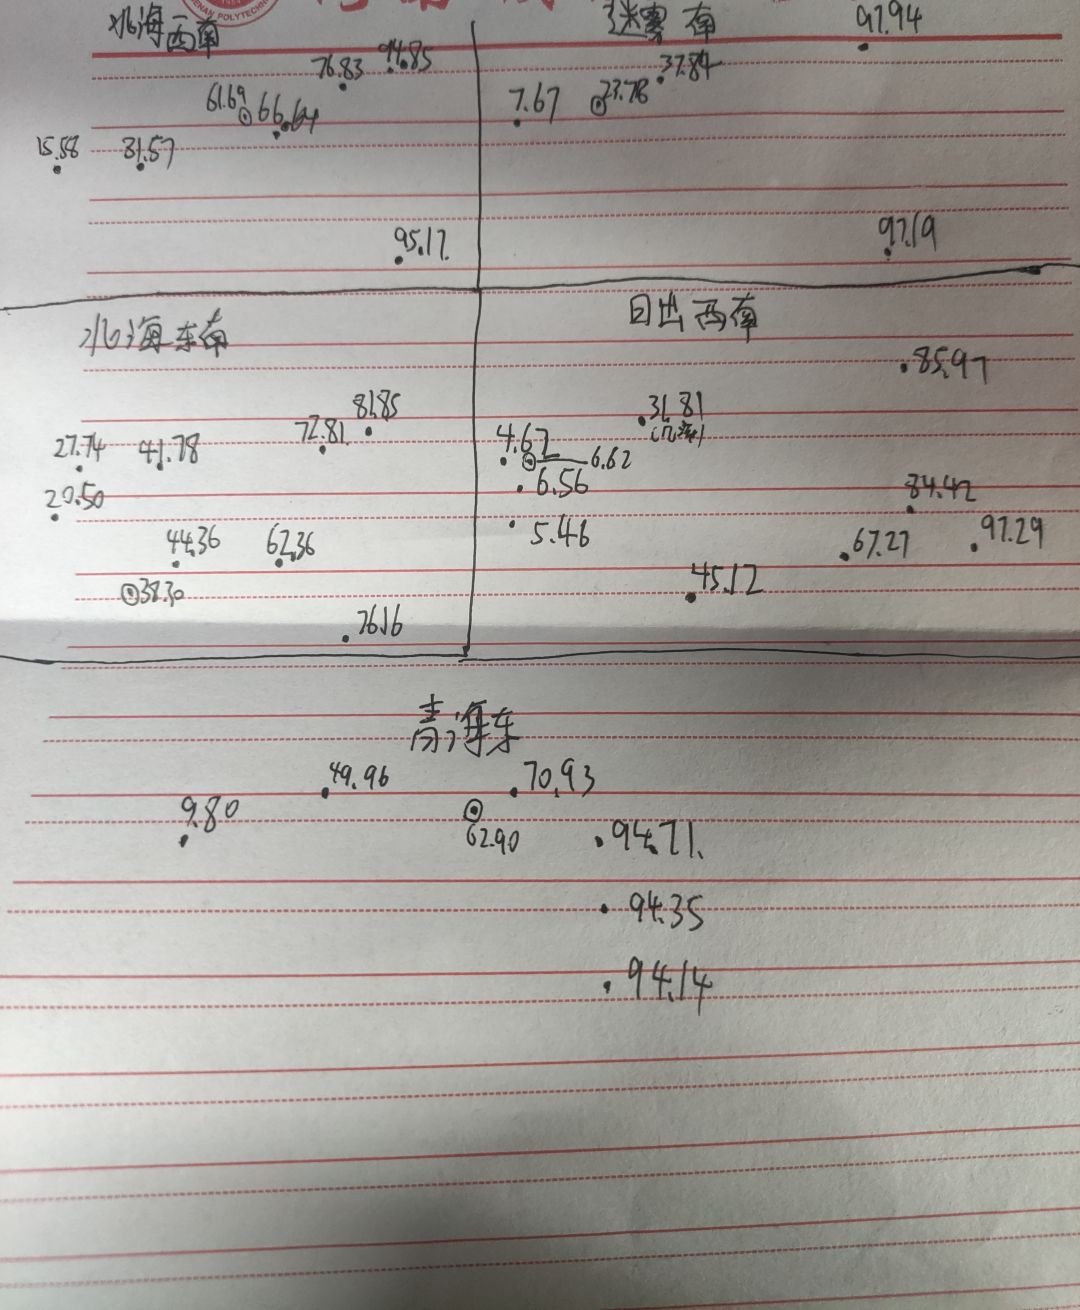 北海西南
94.85
76.83
61.69
66.64
15.58
31.57
95.17
迷雾南
97.94
37.84
23.78
7.67
97.19
北海东南
81.85
72.81
27.74
41.78
20.50
44.36
62.36
38.30
76.16
日出西南
85.97
31.81
4.62
6.62
6.56
84.42
5.46
67.27
97.29
45.12
青海东
49.96
70.93
9.80
62.90
94.71
94.35
94.14